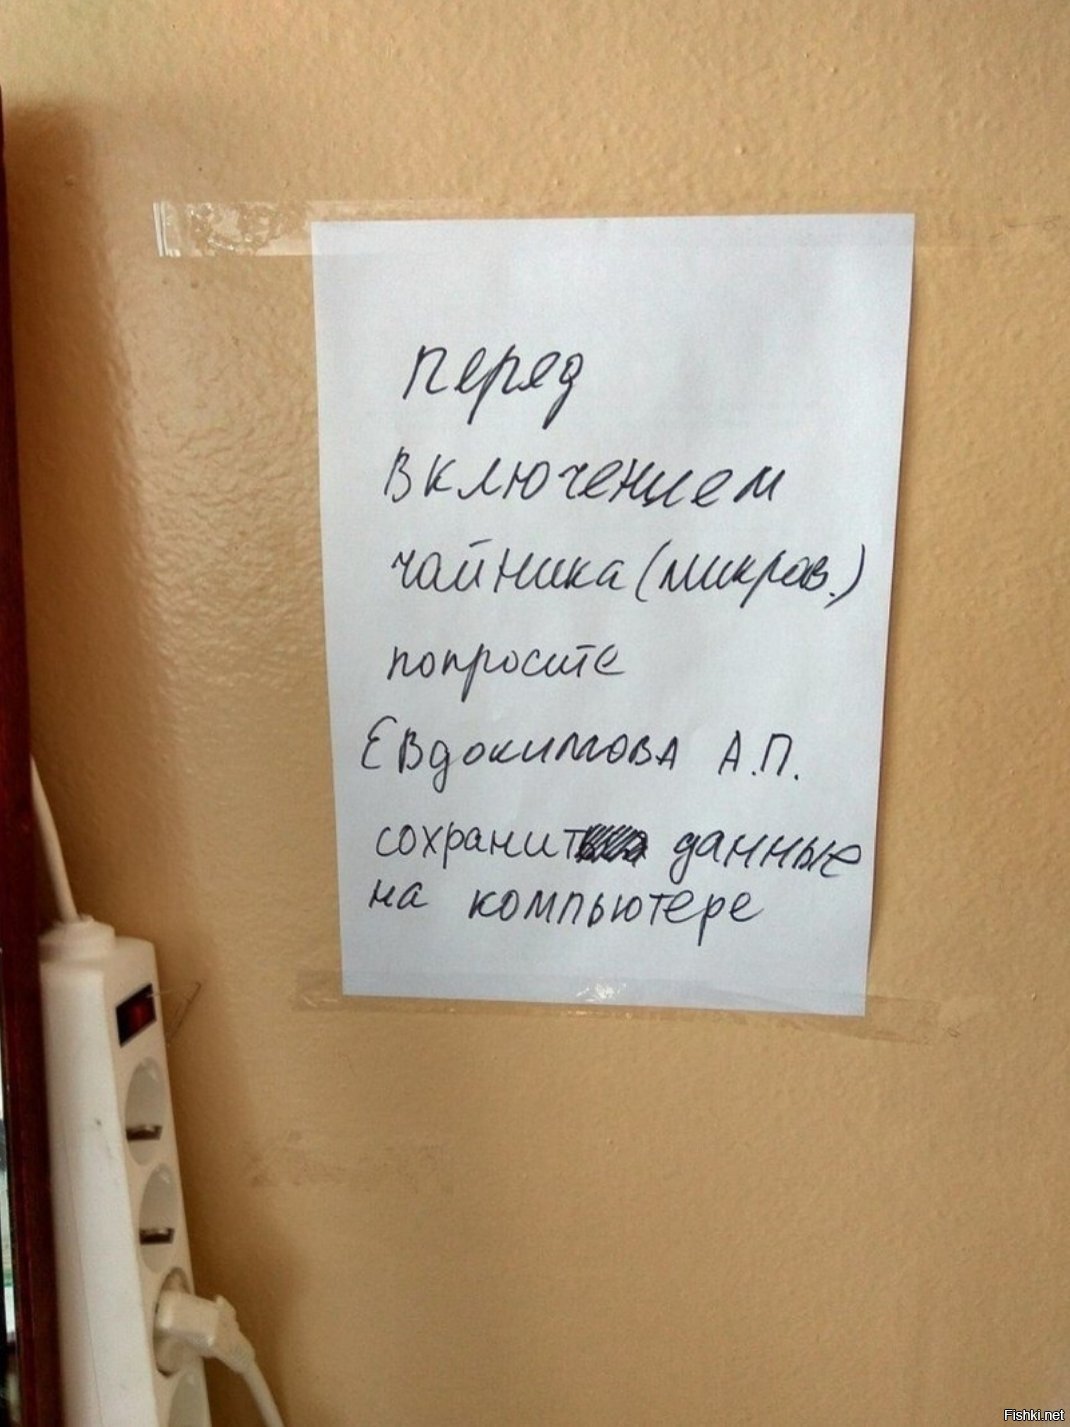 перед
включением
чайника (микров.)
попросите
Евдокимова А.П.
сохранить данные
на компьютере
Fishki.net